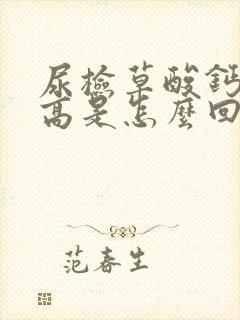 尿檢草酸鈣
高是怎麼回
范春生